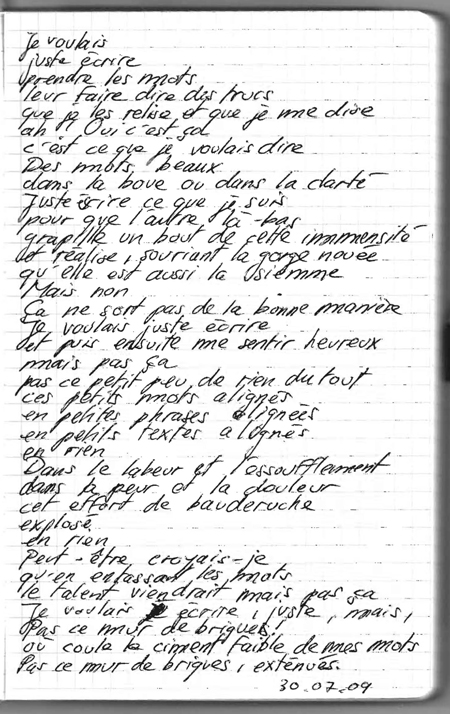 Je voulais
juste écrire
prendre les mots
leur faire dire des trucs
que je les relise et que je me dise
ah ! Oui c'est ça
c'est ce que je voulais dire
Des mots beaux
dans la boue ou dans la clarté
Juste écrire ce que je suis
pour que l'autre là-bas
grapille un bout de cette immensité
et réalise, souriant la gorge nouée
qu'elle est aussi la sienne
Mais non
Ça ne sort pas de la bonne manière
Je voulais juste écrire
et puis ensuite me sentir heureux
mais pas ça
pas ce petit peu de rien du tout
ces petits mots alignés
en petites phrases alignées
en petits textes alignés
en rien
Dans le labeur et l'essoufflement
dans la peur et la douleur
cet effort de bauderuche
explose
en rien
Peut-être croyais-je
qu'en entassant les mots
le talent viendrait mais pas ça
Je voulais écrire, juste, mais,
Pas ce mur de briques!
où coule le ciment faible de mes mots
Pas ce mur de briques, exténués.
30.07.09